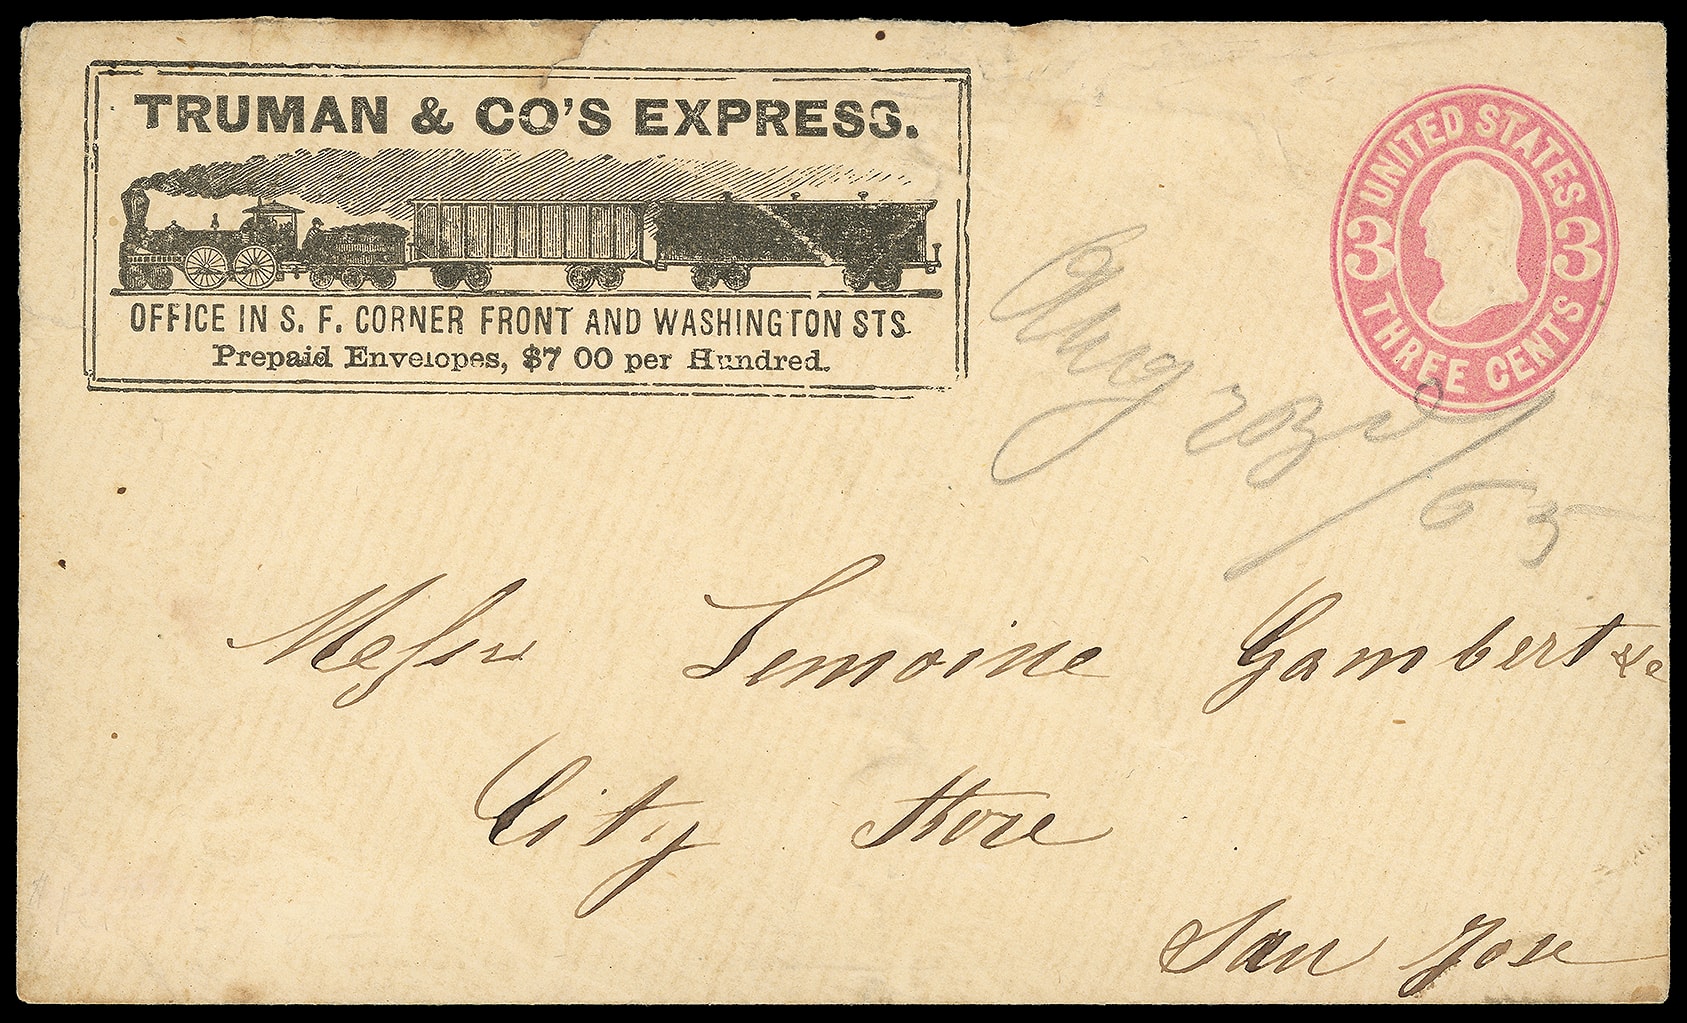 TRUMAN & CO'S EXPRESS.
OFFICE IN S. F. CORNER FRONT AND WASHINGTON STS.
Prepaid Envelopes, $7 00 per Hundred.
UNITED STATES
3 3
THREE CENTS
Aug 23d/65
Messrs Lemoine Gambert &c
City Store
San Jose